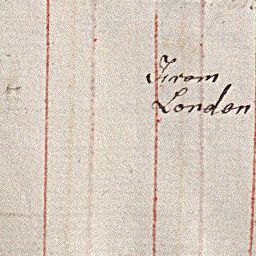 From
London